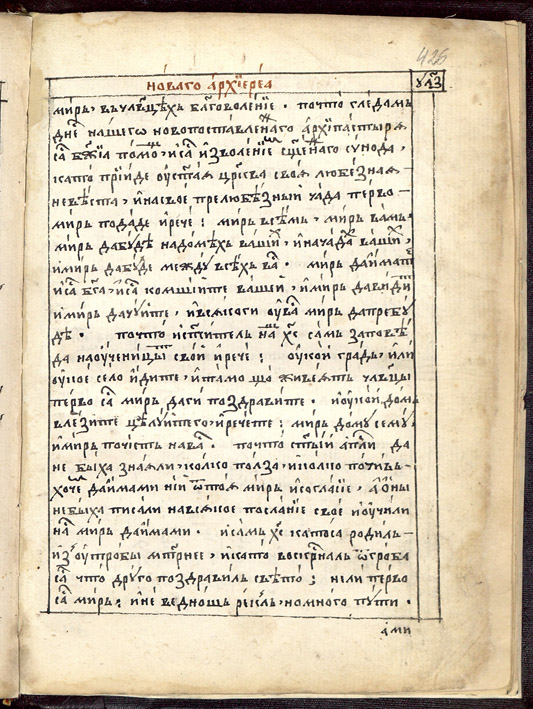 426
но́ваго а҆рхїере́а
миръ, въ члв҃цѣхъ бл҃говоленїе . почто̀ гледамъ
дн҃е нашегѡ новопоставленаго архїпастырѧ
са бж҃їѧ помо, иса и҆зволенїе сщ҃енаго сѵнода,
исапо прїиде свою любезнаѧ
невѣста, и҆ насвое прелюбезный чада перво
миръ подаде и҆рече : миръ всѣмъ, миръ вамъ,
миръ да бꙋде надомѣхъ ваши, и҆ начада ваши,
и҆миръ дабꙋде междꙋ всѣхъ ва . миръ даимате
иса бг҃а, иса комшїите вашеи, и҆миръ давиди
и҆миръ дачꙋите, и҆всѧкоги ꙋва миръ дапребꙋ
де . почто̀ на хс҃ самъ заповѣ
да наоученицы свои и҆рече : оукои градъ, и҆ли
оукое село и҆дите, и҆тамо що живеатъ члв҃цы
перво са миръ даги поздравите . иоукои домъ
влезите цѣлꙋите го и҆речете : миръ домꙋ семꙋ,
и҆миръ почистъ нава . почто ст҃ый ап҃ли да
не быха знаали, колко полза, иколко почивъ
хоче даимами нїи ѿ тоѧ миръ исогласїе, а ѻ҆ны
небыха писали навсѧкое посланїе свое и҆оучили
на миръ даимами . исамъ хс҃ исатоса родилъ
из оутробы мт҃рнее, исапо воскр҃сналъ ѿ гроба
са что дрꙋго поздравилъ свѣто ; нели перво
са миръ ; и҆не веднощъ рекълъ, номного пꙋти .
ами